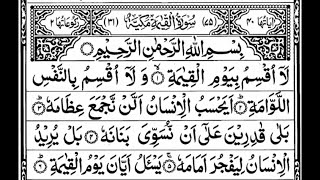 اٰیاتُهَا ۴۰ (۷۵) سُوْرَةُ الْقِیٰمَةِ مَكِّیَّةٌ (۳۱) رُكُوْعَاتُهَا ۲
بِسْمِ اللّٰهِ الرَّحْمٰنِ الرَّحِیْمِ
لَاۤ اُقْسِمُ بِیَوْمِ الْقِیٰمَةِ ۝۱ وَ لَاۤ اُقْسِمُ بِالنَّفْسِ
اللَّوَّامَةِ ۝۲ اَیَحْسَبُ الْاِنْسَانُ اَلَّنْ نَّجْمَعَ عِظَامَهٗ ۝۳
بَلٰى قٰدِرِیْنَ عَلٰۤى اَنْ نُّسَوِّیَ بَنَانَهٗ ۝۴ بَلْ یُرِیْدُ
الْاِنْسَانُ لِیَفْجُرَ اَمَامَهٗ ۝۵ یَسْـَٔلُ اَیَّانَ یَوْمُ الْقِیٰمَةِ ۝۶